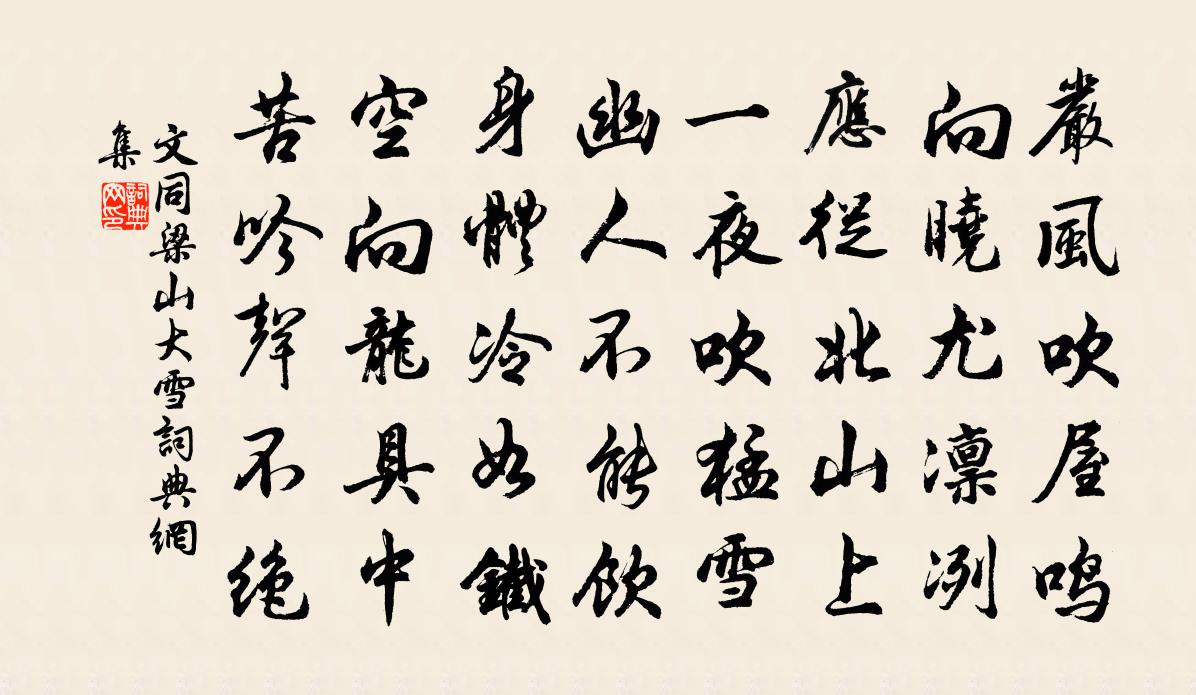 嚴風吹屋鳴
向曉尤凛冽
應從北山上
一夜吹猛雪
幽人不能飲
身體冷如鐵
空向龍具中
苦吟聲不絕
文同梁山大雪詞典網
集
詞典
网印